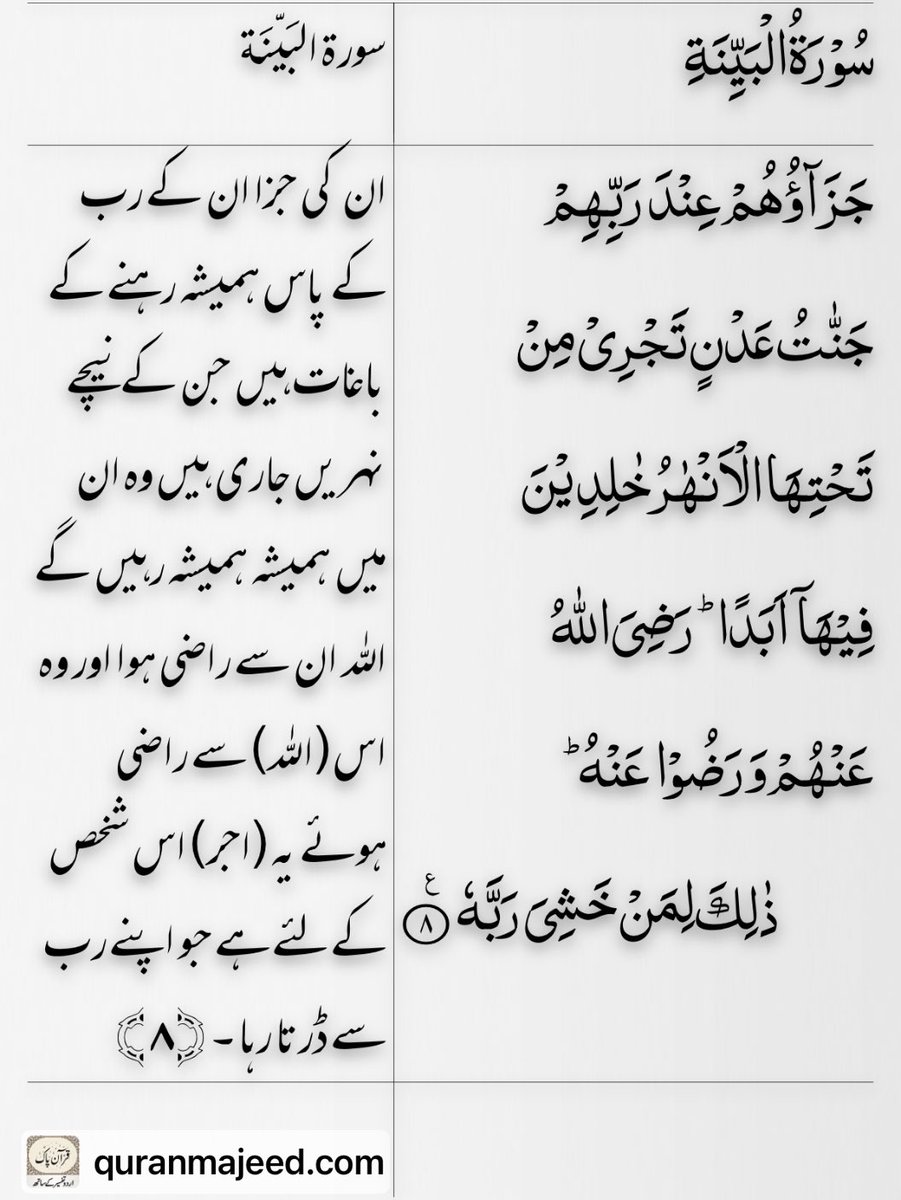 سُوْرَةُ الْبَيِّنَةِ
جَزَآؤُهُمْ عِنْدَ رَبِّهِمْ
جَنّٰتُ عَدْنٍ تَجْرِىْ مِنْ
تَحْتِهَا الْاَنْهٰرُ خٰلِدِيْنَ
فِيْهَاۤ اَبَدًا ؕ رَضِىَ اللّٰهُ
عَنْهُمْ وَرَضُوْا عَنْهُ ؕ
ذٰلِكَ لِمَنْ خَشِىَ رَبَّهٗ ۸ ع
سورة البَیّنَة
ان کی جزا ان کے رب
کے پاس ہمیشہ رہنے کے
باغات ہیں جن کے نیچے
نہریں جاری ہیں وہ ان
میں ہمیشہ ہمیشہ رہیں گے
اللہ ان سے راضی ہوا اور وہ
اس (اللہ) سے راضی
ہوئے یہ (اجر) اس شخص
کے لئے ہے جو اپنے رب
سے ڈرتا رہا۔ ﴿۸﴾
قرآن پاک
اردو تفسیر کے ساتھ
quranmajeed.com